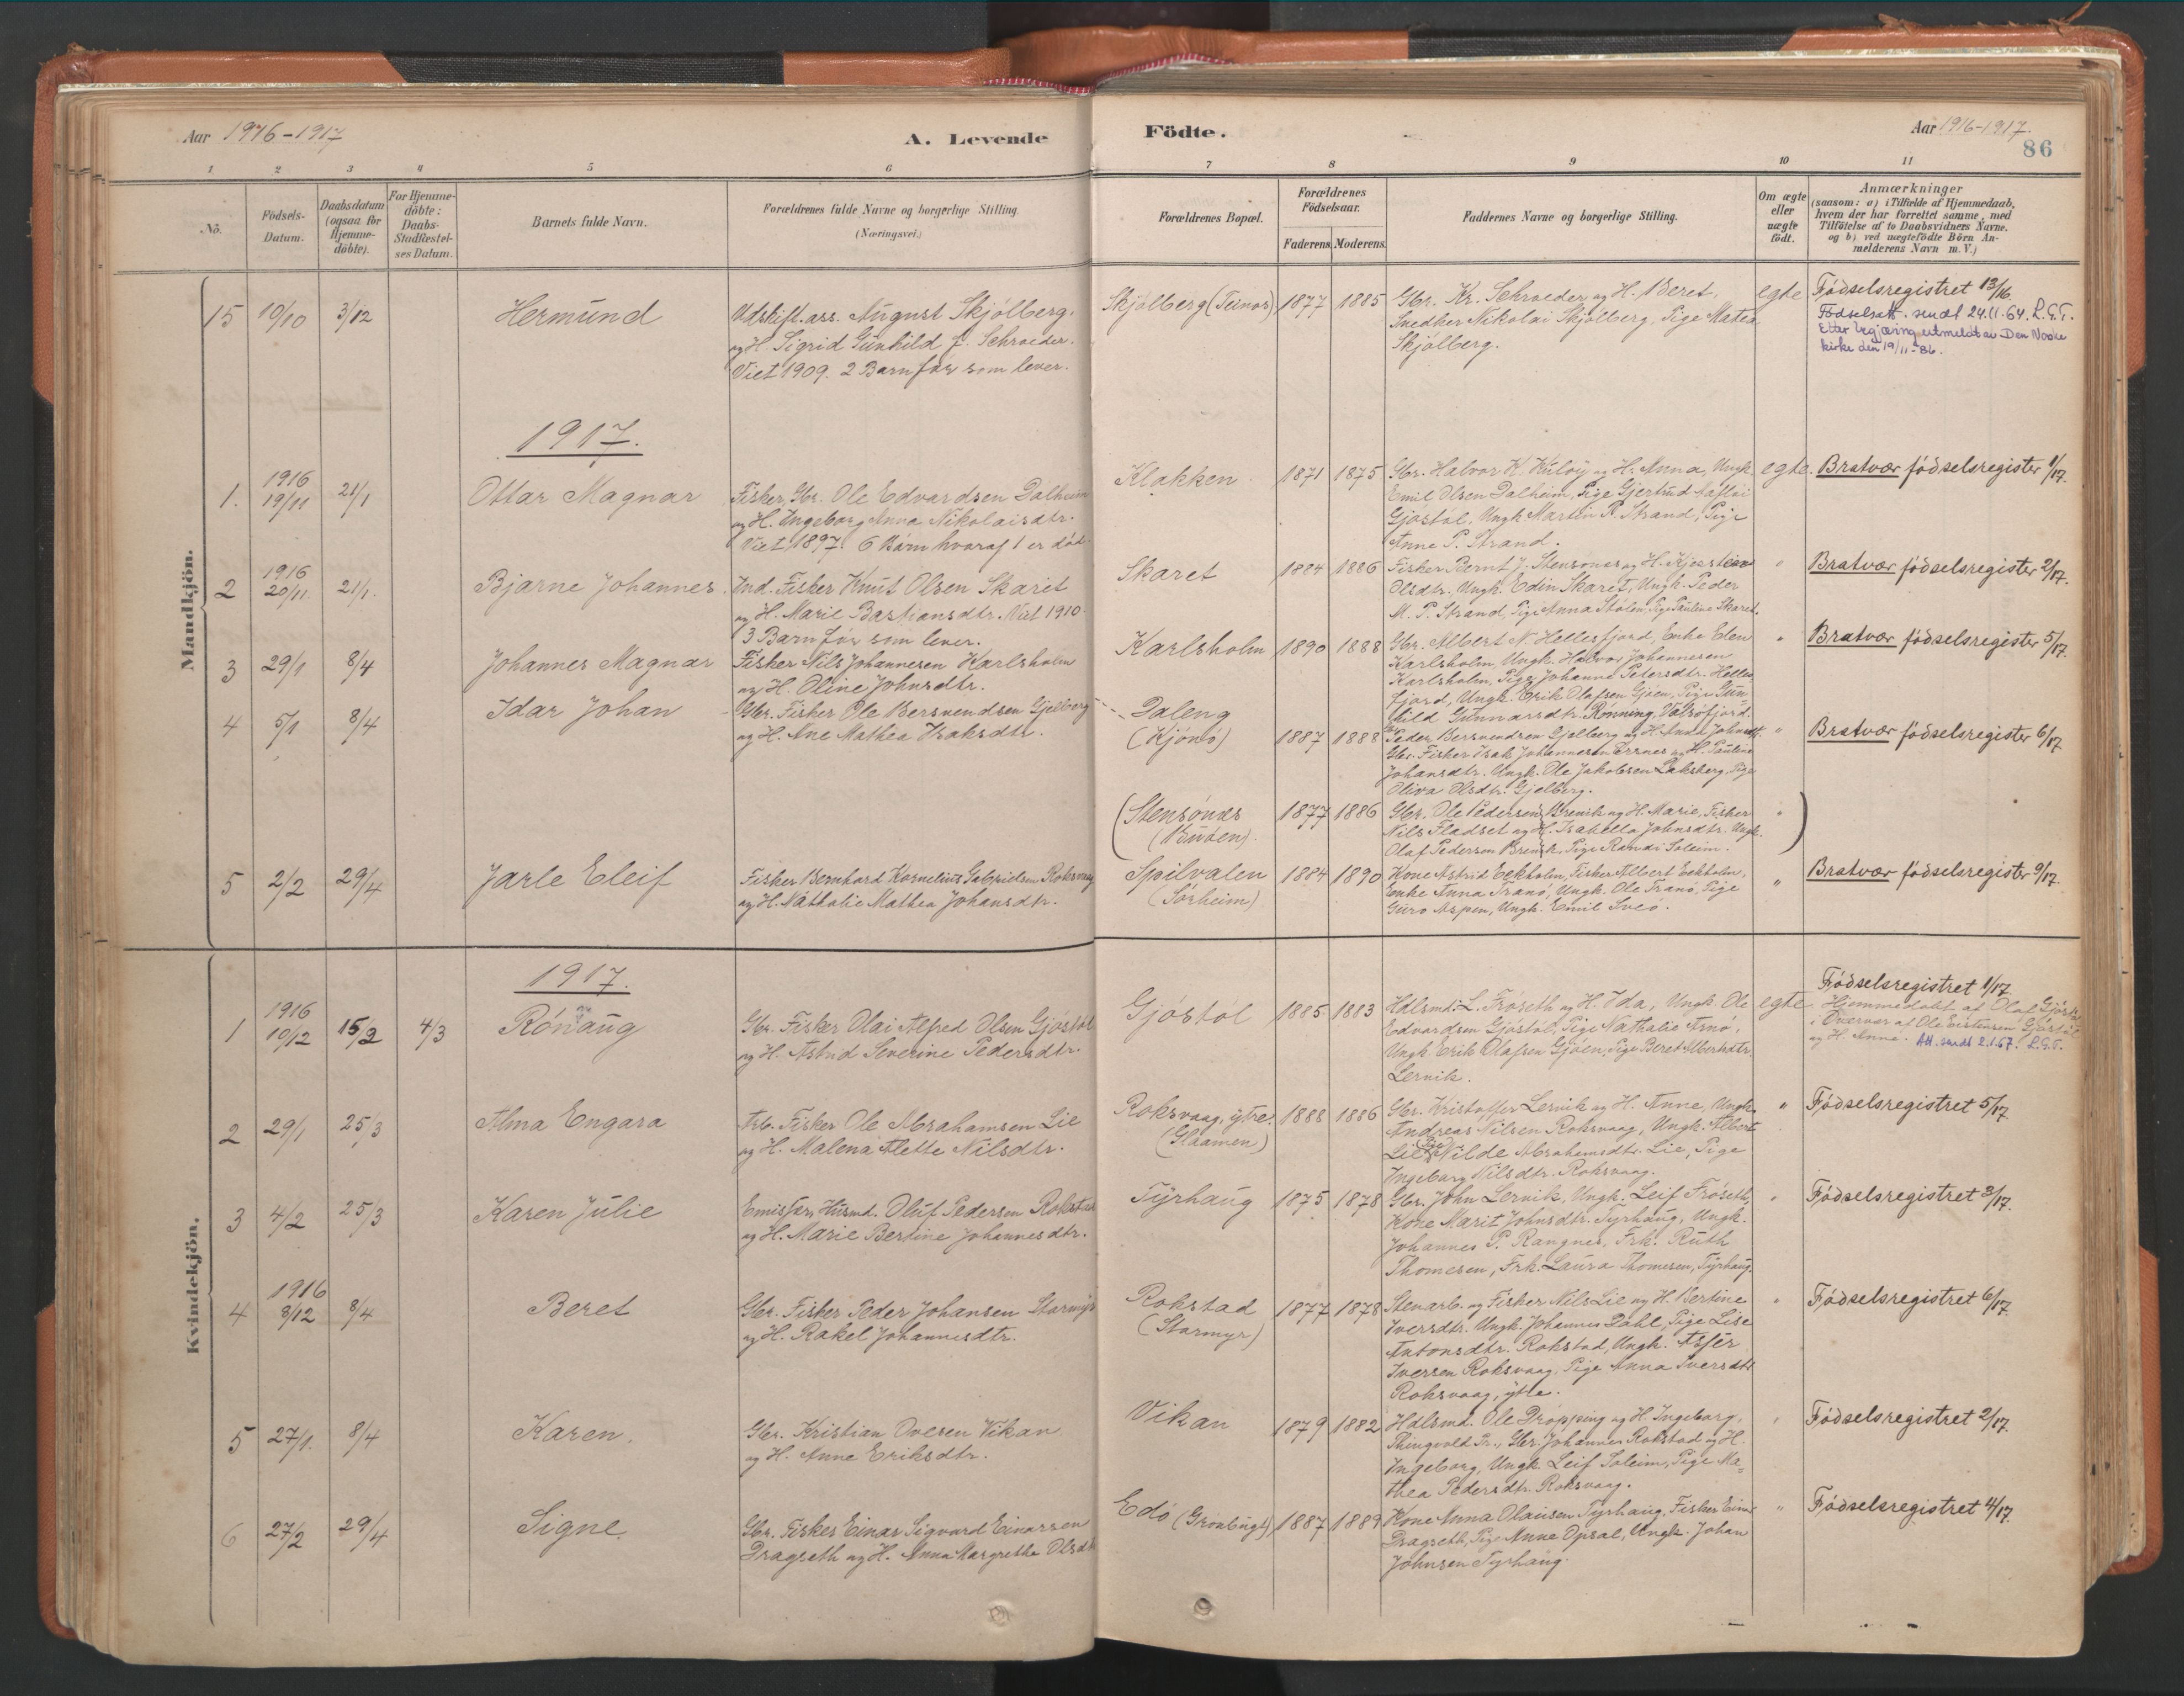 Aar 1916-1917
A. Levende
Födte.
Aar 1916-1917.
86
1 2 3 4 5 6 7 8 9 10 11
No.
Födsels-
Datum.
Daabsdatum
(ogsaa for
Hjemme-
döbte).
For Hjemme-
döbte:
Daabs-
Stadfæstel-
ses Datum.
Barnets fulde Navn.
Forældrenes fulde Navne og borgerlige Stilling.
(Næringsvei.)
Forældrenes Bopæl.
Forældrenes
Födselsaar.
Faderens. Moderens.
Faddernes Navne og borgerlige Stilling.
Om ægte
eller
uægte
födt.
Anmærkninger
(saasom: a) i Tilfælde af Hjemmedaab,
hvem der har forrettet samme, med
Tilföielse af to Daabsvidners Navne.
og b) ved uægtefödte Börn An-
melderens Navn m.V.)
Mandkjön.
15 10/10 3/12 Hermund
Udskift.ass. August Skjölberg.
og H. Sigrid Gunhild f. Schroeder.
Viet 1909. 2 Barn för som lever.
Skjölberg 1877 1885
Gbr. Kr. Schroeder og H. Beret,
Snedker Nikolai Skjölberg, Pige Matea
Skjölberg.
egte
Födselsregistret 13/16.
Fødselsatt. sendt 24.11.64. L.G.T.
Etter begjæring utmeldt av Den Norske
kirke den 19/11-86.
1917.
1. 1916 19/11 21/1 Ottar Magnar
Fisker, Gbr. Ole Edvardsen Dalheim
og H. Ingeborg Anna Nikolaisdtr.
Viet 1897. 6 Börn hvoraf 1 er död.
Klakken. 1871 1875
Gbr. Halvor K. Kulöy og H. Anna, Ungk.
Emil Olsen Dalheim, Pige Gjertrud
Gjöstöl, Ungk. Martin P. Strand, Pige
Anne P. Strand.
egte.
Bratvær födselsregister 1/17.
2 1916 20/11. 21/1. Bjarne Johannes
Ind. Fisker Knut Olsen Skaret
og H. Marie Bastiansdtr. Viet 1910.
3 Barn för som lever.
Skaret 1884 1886
Fisker Bernt J. Stensönes og H. Kjersten
Olsdtr. Ungk. Edin Skaret, Ungk. Peder
M. P. Strand, Pige Anna Stölen, Pige Pauline Skaret.
"
Bratvær födselsregister 2/17.
3 29/1 8/4 Johannes Magnar
Fisker Nils Johannesen Karlsholm
og H. Oline Johnsdtr.
Karlsholm 1890 1888
Gbr. Albert N. Hellesfjord, Enke Elen
Karlsholm, Ungk. Halvor Johannesen
Karlsholm, Pige Johanna Petersdtr. Helles
fjord, Ungk. Erik Olafsen Gjöen, Pige Gun-
hild Gunnarsdtr. Rönning, Valsöfjord.
"
Bratvær födselsregister 5/17.
4 5/1 8/4 Idar Johan
Gbr. Fisker Ole Bersvendsen Gjelberg
og H. Ane Mathea Isaksdtr.
Daleng
(Kjönö) 1887 1888
Peder Bersvendsen Gjelberg og H. Anna Johnsdtr.
Gbr. Fisker Isak Johannesen Ernes og H. Pauline
Johansdtr. Ungk. Ole Jakobsen Laksberg, Pige
Oliva Olsdtr. Gjelberg.
"
Bratvær födselsregister 6/17
(Stensönes
(Buöen). 1877 1886
Gbr. Ole Pedersen Brevik og H. Marie, Fisker
Nils Fladset og H. Isabella Johnsdtr. Ungk.
Olaf Pedersen Brevik, Pige Randi Soleim.
" )
5 2/2 29/4 Jarle Eleif
Fisker Bernhard Kornelius Gabrielsen Roksvaag
og H. Nathalie Mathea Johansdtr.
Spilvalen
(Sörheim) 1884 1890
Kone Astrid Eekholm, Fisker Albert Eekholm,
Enke Anna Tranö, Ungk. Ole Tranö, Pige
Guro Aspen, Ungk. Emil Sveö.
"
Bratvær födselsregister 9/17.
Kvindekjön.
1917.
1 1916 10/12 15/2 4/3 Rönnaug
Gbr. Fisker Olai Alfred Olsen Gjöstöl
og H. Astrid Severine Pedersdtr.
Gjöstöl 1885 1883
Hdlsmd. L. Fröseth og H. Ida, Ungk. Ole
Edvardsen Gjöstöl, Pige Nathalie Arnö,
Ungk. Erik Olafsen Gjöen, Pige Beret Albertsdtr.
Lervik.
egte
Födselsregistret 1/17.
Hjemmedöbt af Olaf Gjöstöl
i Overvær af Ole Gjöstöl
og H. Anne. Att. sendt 2.1.67. L.G.T.
2 29/1 25/3 Alma Engara
Arb. Fisker Ole Abrahamsen Lie
og H. Malena Alette Nilsdtr.
Roksvaag, ytre. 1888 1886
Gbr. Kristoffer Lervik og H. Anne, Ungk.
Andreas Nilsen Roksvaag, Ungk. Albert
Lie, Pige Nilde Abrahamsdtr. Lie, Pige
Ingeborg Nilsdtr. Roksvaag.
"
Födselsregistret 5/17
3 4/2 25/3 Karen Julie
Emissær, Husmd. Oluf Pedersen Rokstad
og H. Marie Bertine Johannesdtr.
Tyrhaug 1875 1878
Gbr. John Lervik, Ungk. Leif Fröseth,
Kone Marit Johnsdtr. Tyrhaug, Ungk.
Johannes P. Rangnes, Frk. Ruth
Thomesen, Frk. Laura Thomesen, Tyrhaug.
"
Födselsregistret 3/17.
4 1916 8/12 8/4 Beret
Gbr. Fisker Peder Johansen Stormyr
og H. Rakel Johannesdtr.
Rokstad
(Stormyr) 1877 1878
Stenarb. og Fisker Nils Lie og H. Bertine
Iversdtr. Ungk. Johannes Dahl, Pige Lise
Antonsdtr. Rokstad, Ungk. Asser
Iversen Roksvaag, Pige Anna Iversdtr
Roksvaag, ytre.
"
Födselsregistret 6/17.
5 27/1. 8/4 Karen.
Gbr. Kristian Ovesen Vikan
og H. Anne Eriksdtr.
Vikan 1879 1882
Hdlsmd. Ole Dröpping og H. Ingeborg,
Thingvold Pr., Gbr. Johannes Rokstad og H.
Ingeborg, Ungk. Leif Soleim, Pige Ma=
thea Pedersdtr. Roksvaag.
"
Födselsregistret 2/17.
6 27/2 29/4 Signe.
Gbr. Fisker Einar Sigvard Einarsen
Dragseth og H. Anna Margrethe Olsdtr
Edö 1887 1889
Kone Anna Olausen Tyrhaug, Fisker Einar
Dragseth, Pige Anne Opsal, Ungk. Johan
Johnsen Tyrhaug.
"
Födselsregistret 4/17.